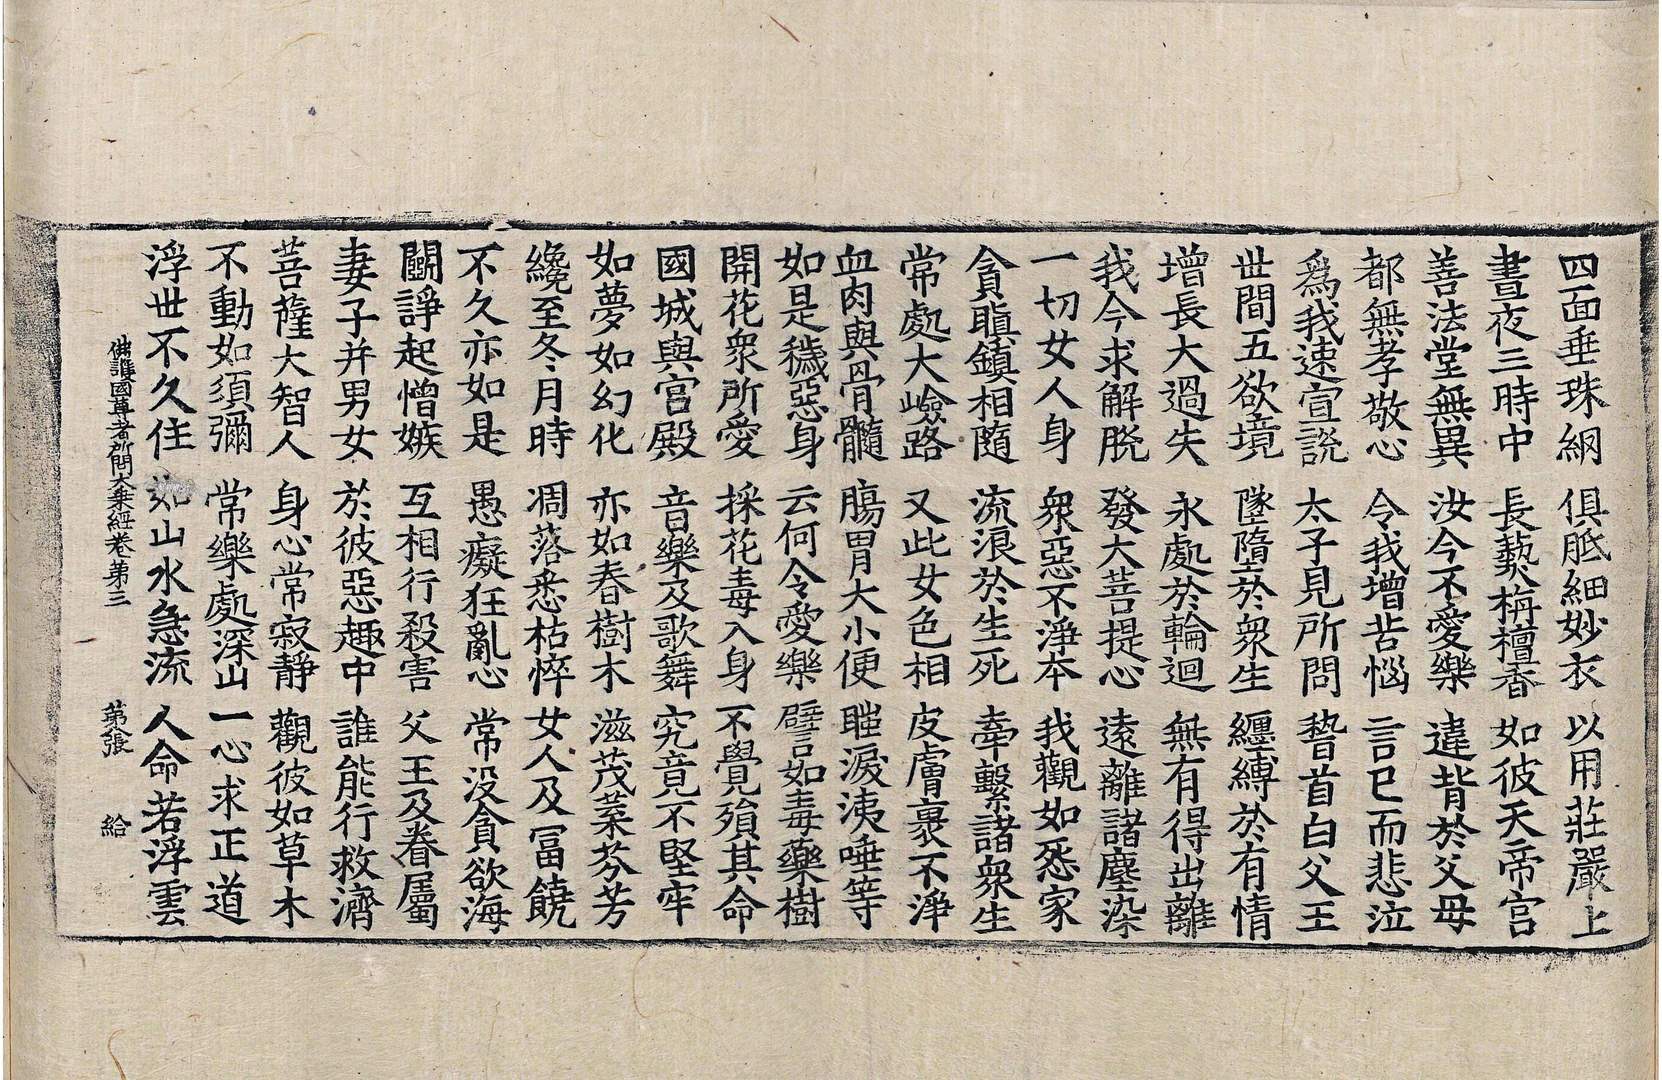 四面垂珠網　俱胝細妙衣　以用莊嚴上
晝夜三時中　長爇栴檀香　如彼天帝宮
善法堂無異　汝今不愛樂　違背於父母
都無孝敬心　令我增苦惱　言已而悲泣
爲我速宣說　太子見所問　暫首白父王
世間五欲境　墜墮於衆生　纏縛於有情
增長大過失　永處於輪迴　無有得出離
我今求解脫　發大菩提心　遠離諸塵染
一切女人身　衆惡不淨本　我觀如怨家
貪瞋鎮相隨　流浪於生死　牽繫諸衆生
常處大嶮路　又此女色相　皮膚裹不淨
血肉與骨髓　腸胃大小便　眵淚洟唾等
如是穢惡身　云何令愛樂　譬如毒藥樹
開花衆所愛　採花毒入身　不覺殞其命
國城與宮殿　音樂及歌舞　究竟不堅牢
如夢如幻化　亦如春樹木　滋茂葉芬芳
纔至冬月時　凋落悉枯悴　女人及冨饒
不久亦如是　愚癡狂亂心　常没貪欲海
鬭諍起憎嫉　互相行殺害　父王及眷屬
妻子并男女　於彼惡趣中　誰能行救濟
菩薩大智人　身心常寂靜　觀彼如草木
不動如須彌　常樂處深山　一心求正道
浮世不久住　如山水急流　人命若浮雲
佛說護國尊者所問大乘經卷第三　第六張　給